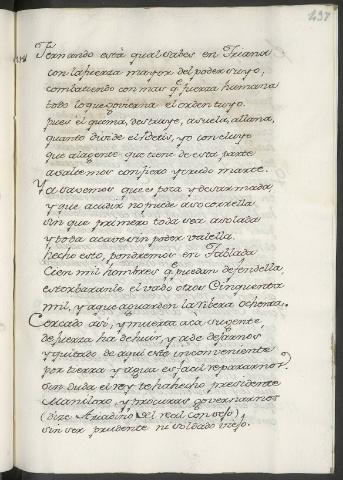 237
Fernando està qual sabes en Triana
con la fuerza mayor del poder suyo,
combatiendo con mas q̃ fuerza humana
todo lo que govierna el orden tuyo.
pues èl quema, destruye, asuela, allana,
quanto divide el Betis, yo concluyo
que a la gente que tiene de esta parte
asaltemos con fiero y crudo marte.
Ya savemos que es poca y desarmada,
y que acudir no puede a socorrella
sin que primero toda sea asolada
y toda acave sin poder valella.
hecho esto, pondremos en Tablada
Cien mil hombres q̃ puedan defendella,
estorbarante el vado otros Cinquenta
mil, y aque aguarden la Ribera ochenta.
Cercado asi, y muerta acà su gente
de fuerza ha de huir, y a de dejarnos
y quitado de aqui este inconveniente
por tierra y agua es facil repararnos?
sin duda el rey te ha hecho presidente
Maniloro, y procuras governarnos
(dize Ariadino del real consejo)
sin ser prudente ni soldado viejo.